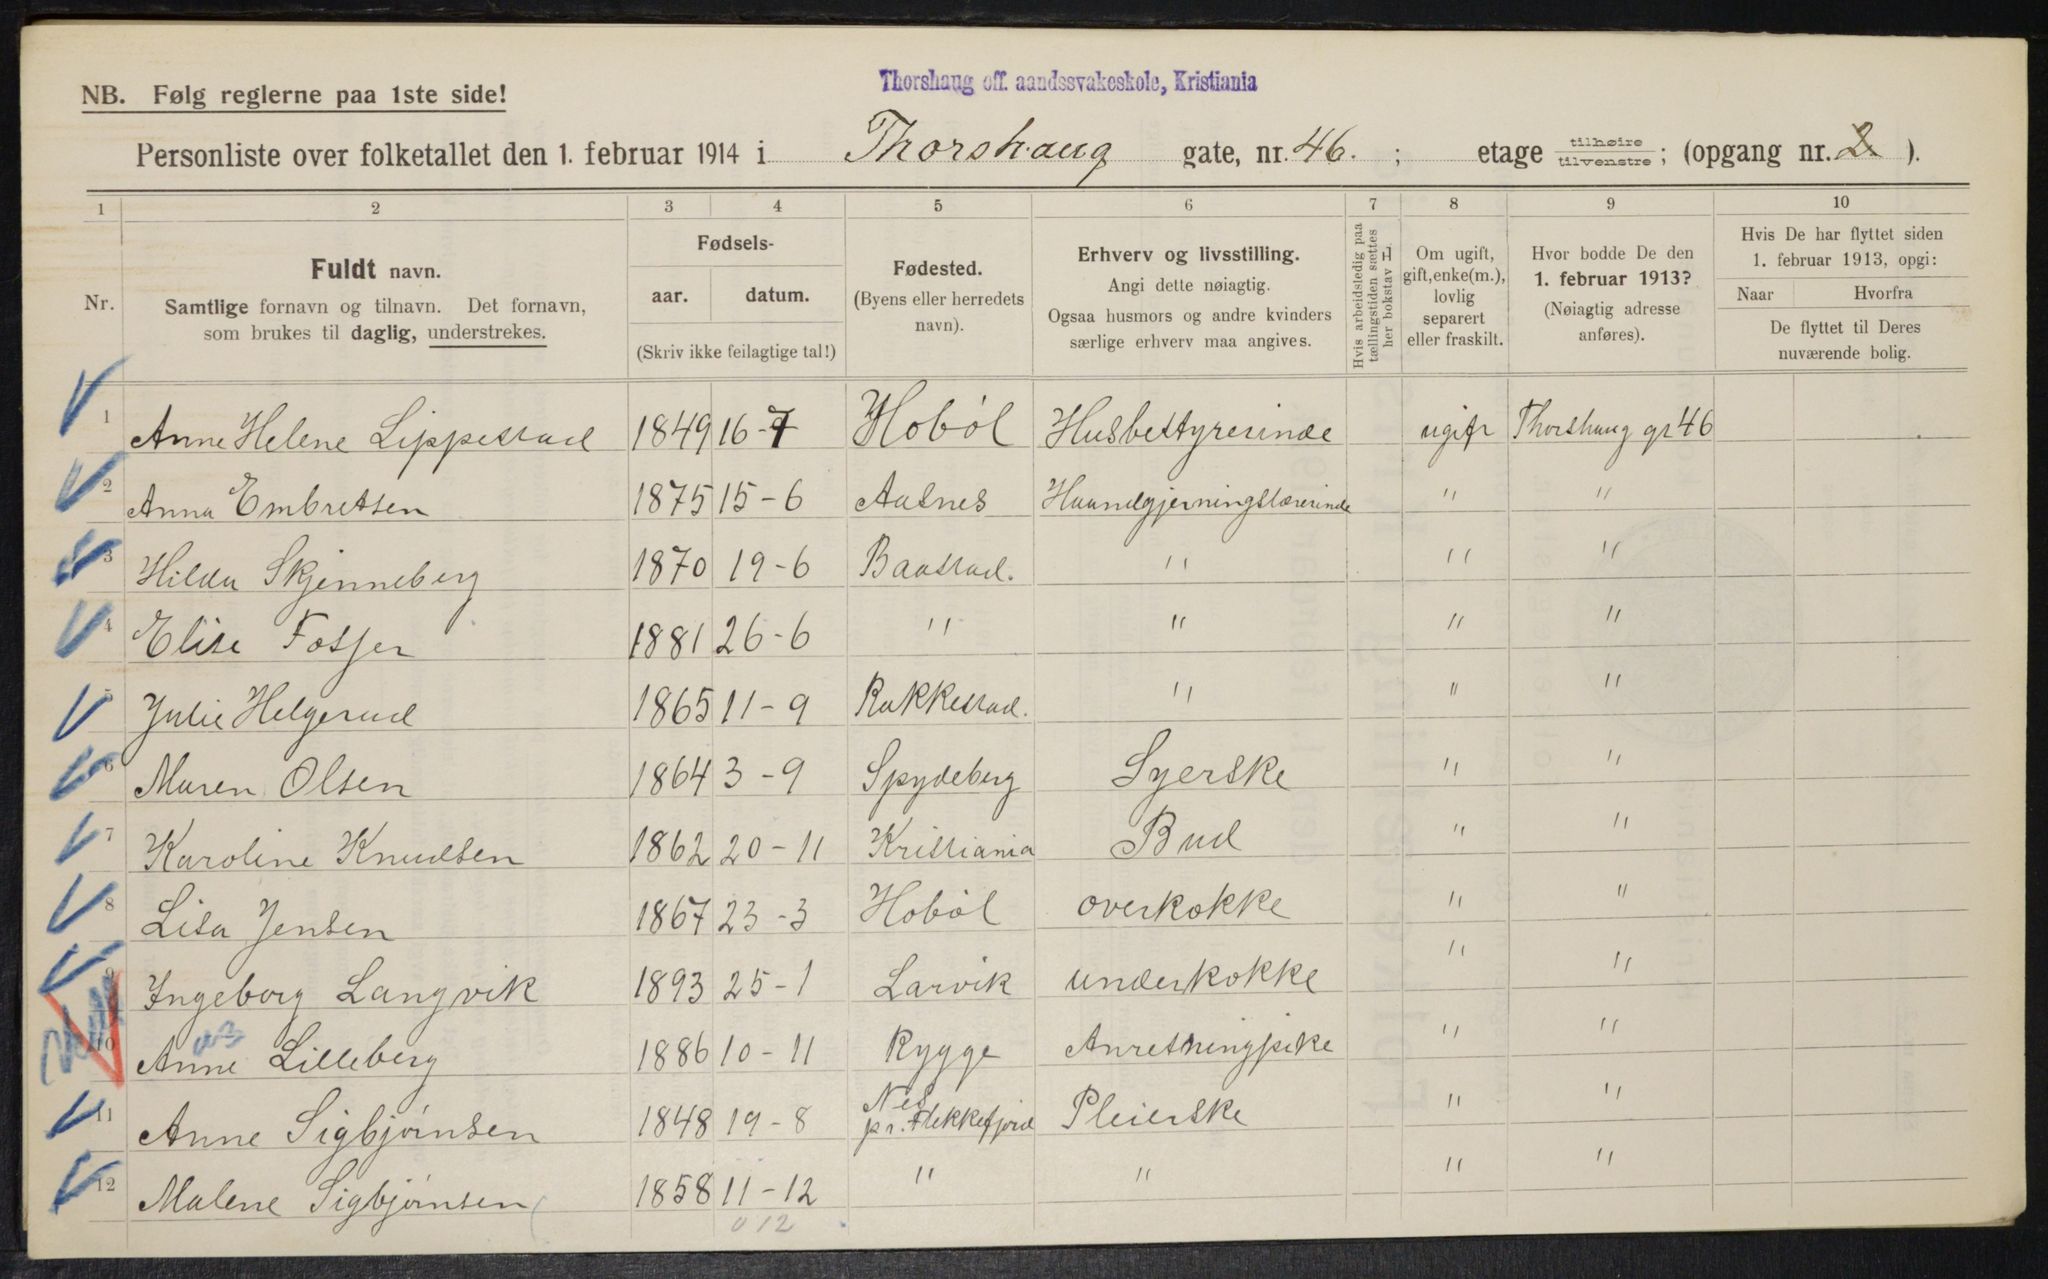 Thorshaug off. aandssvakeskole, Kristiania
NB. Følg reglerne paa 1ste side!
Personliste over folketallet den 1. februar 1914 i Thorshaug gate, nr. 46. ; etage tilhøire/tilvenstre; (opgang nr. 2 ).
1 2 3 4 5 6 7 8 9 10
Nr.
Fuldt navn.
Samtlige fornavn og tilnavn. Det fornavn,
som brukes til daglig, understrekes.
Fødsels-
aar. datum.
(Skriv ikke feilagtige tal!)
Fødested.
(Byens eller herredets
navn).
Erhverv og livsstilling.
Angi dette nøiagtig.
Ogsaa husmors og andre kvinders
særlige erhverv maa angives.
Hvis arbeidsledig paa
tællingstiden sættes
her bokstav L
Om ugift,
gift, enke(m.),
lovlig
separert
eller fraskilt.
Hvor bodde De den
1. februar 1913?
(Nøiagtig adresse
anføres).
Hvis De har flyttet siden
1. februar 1913, opgi:
Naar Hvorfra
De flyttet til Deres
nuværende bolig.
1 Anne Helene Lippestad 1849 16-7 Hobøl Husbestyrerinde ugift Thorshaug gt 46
2 Anna Embretsen 1875 15-6 Aasnes Haandgjerningslærerinde " "
3 Hilda Skjenneberg 1870 19-6 Baastad. " " "
4 Elise Fosser 1881 26-6 " " " "
5 Julie Helgerud 1865 11-9 Rakkestad. " " "
6 Maren Olsen 1864 3-9 Spydeberg Syerske " "
7 Karoline Knudsen 1862 20-11 Kristiania Bud " "
8 Lisa Jensen 1867 23-3 Hobøl overkokke " "
9 Ingeborg Langvik 1893 25-1 Larvik underkokke " "
10 Anne Lilleberg 1886 10-11 Rygge Anretningpike " "
11 Anne Sigbjørnsen 1848 19-8 Nes pr. Flekkefjord Pleierske " "
12 Malene Sigbjørnsen 1858 11-12 " " " "
012